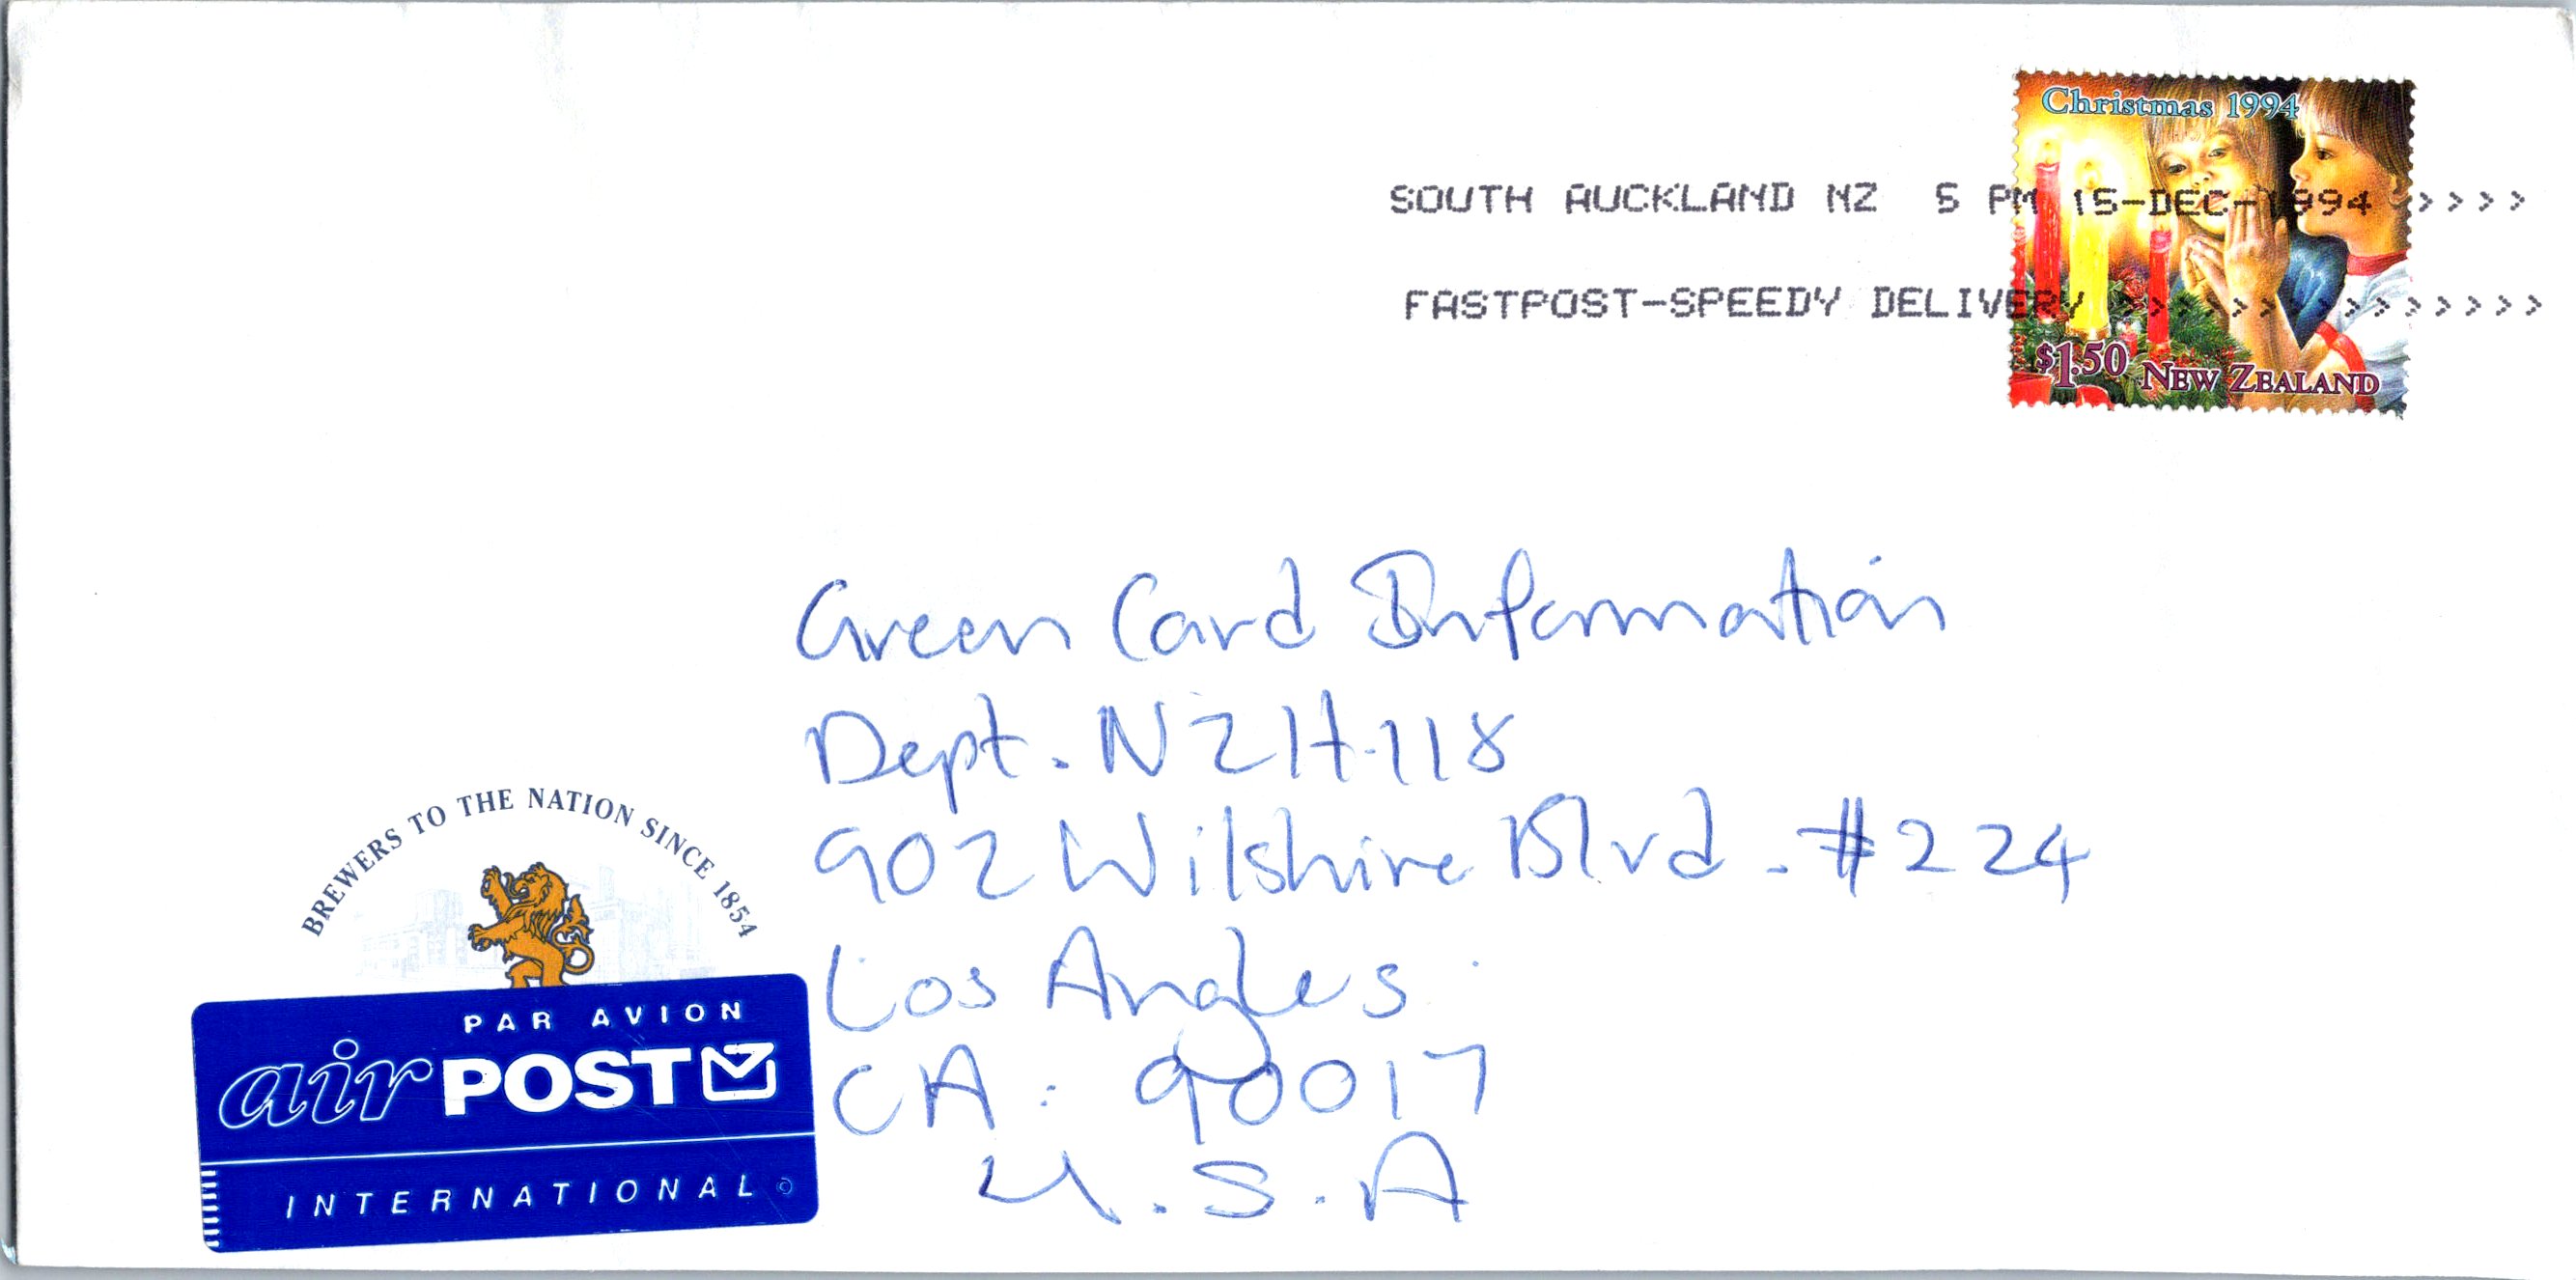 Christmas 1994
SOUTH AUCKLAND NZ 5 PM 15-DEC-1994 >>>>
FASTPOST-SPEEDY DELIVERY >>>>>>>>>>>>>>>
$1.50 NEW ZEALAND
Green Card Information
Dept. NZH-118
902 Wilshire Blvd. #224
Los Angles
CA. 90017
U.S.A
BREWERS TO THE NATION SINCE 1854
PAR AVION
air POST
INTERNATIONAL ©